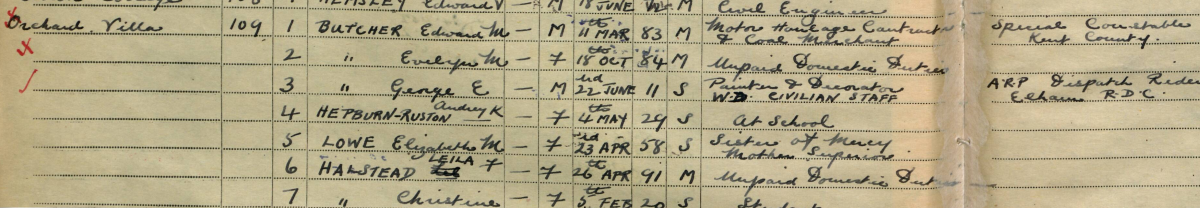 108 1 HEMSLEY Edward V — M 18 JUNE M Civil Engineer
Orchard Villa 109 1 BUTCHER Edward M — M 11th MAR 83 M Motor Haulage Contractor & Coal Merchant Special Constable Kent County.
2 " Evelyn M — F 18th OCT 84 M Unpaid Domestic Duties
3 " George E — M 22nd JUNE 11 S Painter & Decorator W.D CIVILIAN STAFF ARP Dispatch Rider Elham R.D.C.
4 HEPBURN-RUSTON Audrey K — F 4th MAY 29 S At School
5 LOWE Elizabeth M — F 23rd APR 58 S Sister of Mercy Mother Superior
6 HALSTEAD LEILA F — F 26th APR 91 M Unpaid Domestic Duties
7 " Christine — F 5th FEB 20 S Student